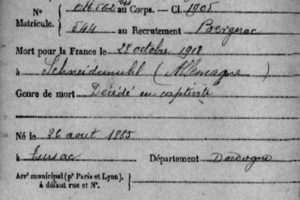 N° au Corps. — Cl. 1905
Matricule. 544 au Recrutement Bergerac
Mort pour la France le 28 octobre 1918
à Schneidemuhl (Allemagne)
Genre de mort Décédé en captivité
Né le 26 aout 1885
à Département Dordogne
Arr' municipal (p' Paris et Lyon).
à défaut rue et N°.